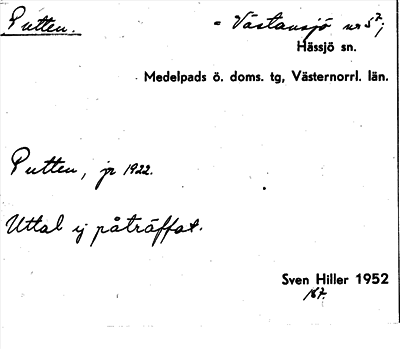 Putten. = Västansjö nr 5⁷;
Hässjö sn.
Medelpads ö. doms. tg, Västernorrl. län.
Putten, jr 1922.
Uttal ej påträffat.
Sven Hiller 1952
167.